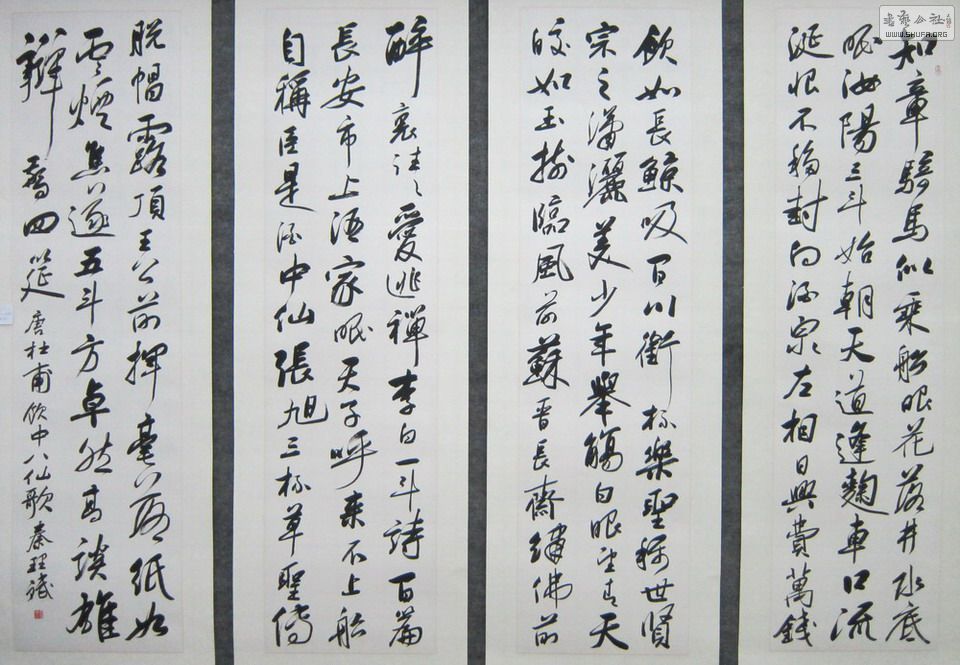 知章騎馬似乘船眼花落井水底
眠汝陽三斗始朝天道逢麴車口流
涎恨不移封向酒泉左相日興費萬錢
飲如長鯨吸百川銜杯樂聖稱世賢
宗之瀟灑美少年舉觴白眼望青天
皎如玉樹臨風前蘇晉長齋繡佛前
醉裏往々愛逃禪李白一斗詩百篇
長安市上酒家眠天子呼来不上船
自稱臣是酒中仙張旭三杯草聖傳
脫帽露頂王公前揮毫落紙如
雲煙焦遂五斗方卓然高談雄
辯驚四筵 唐杜甫飲中八仙歌 秦理斌
書藝公社
WWW.SHUFA.ORG